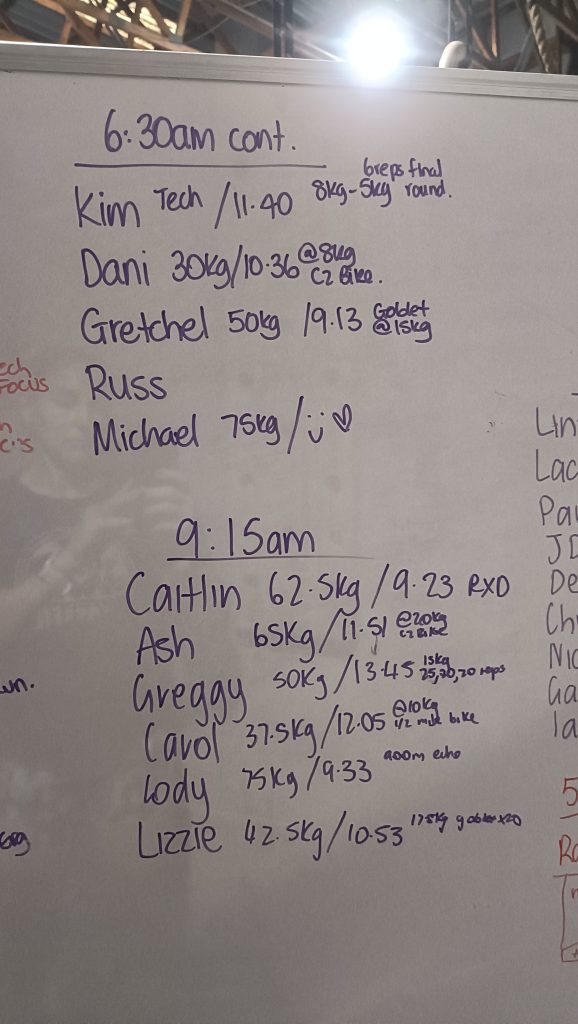 6:30am cont.
Kim Tech /11.40 8kg-5kg 6reps final round.
Dani 30kg/10.36 @8kg C2 Bike.
Gretchel 50kg /9.13 Goblet @15kg
Russ
Michael 75kg/
9:15am
Caitlin 62.5kg/9.23 RXD
Ash 65kg/11.51 @20kg C2 Bike
Greggy 50kg/13.45 15kg 25,20,20 reps
Carol 37.5kg/12.05 @10kg 1/2 mile bike
Cody 75kg/9.33 900m echo
Lizzie 42.5kg/10.53 17.5kg goblet x20
ech
Focus
n
c's
wn.
Lin
Lac
Pau
JD
De
Ch
Nic
Ga
5
Ro